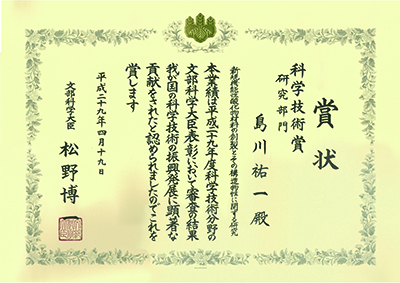 賞状
科学技術賞
研究部門
島川祐一殿
新規機能性酸化物材料の創製とその構造物性に関する研究
本業績は平成二十九年度科学技術分野の
文部科学大臣表彰において審査の結果
我が国の科学技術の振興発展に顕著な
貢献をされたと認められましたのでこれを
賞します
平成二十九年四月十九日
文部科学大臣 松野博